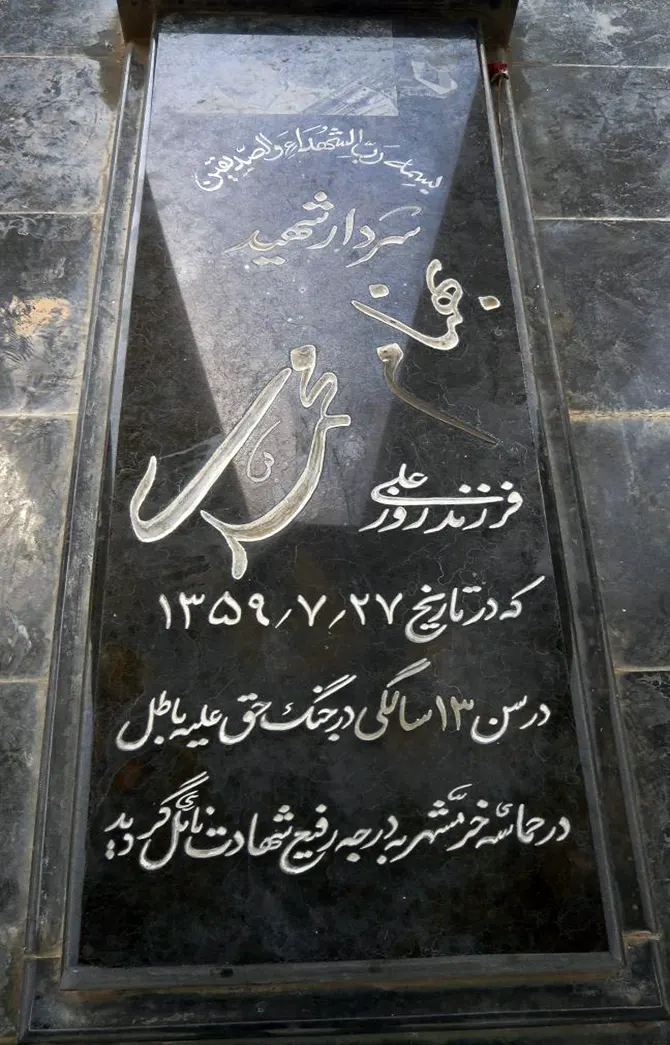 بسم رب الشهداء والصدیقین
سردار شهید
بهنام
محمدی
فرزند روزعلی
که در تاریخ ۲۷/۷/۱۳۵۹
در سن ۱۳ سالگی در جنگ حق علیه باطل
در حماسهٔ خرمشهر به درجه رفیع شهادت نائل گردید